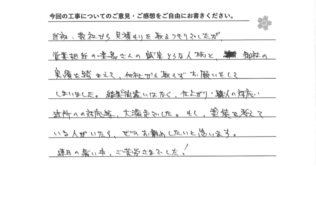 今回の工事についてのご意見・ご感想をご自由にお書きください。
当初、数社から見積りを取るつもりでしたが
営業担当の さんの誠実そうな人柄と、御社の
実績を踏まえて、他社から取らずお願いいたして
しまいました。結果 間違いはなく、仕上がり・職人の対応・
近所への対応等、大満足でした。もし、塗装を考えて
いる人がいたら、ぜひお勧めしたいと思います。
連日の暑い中、ご苦労さまでした!